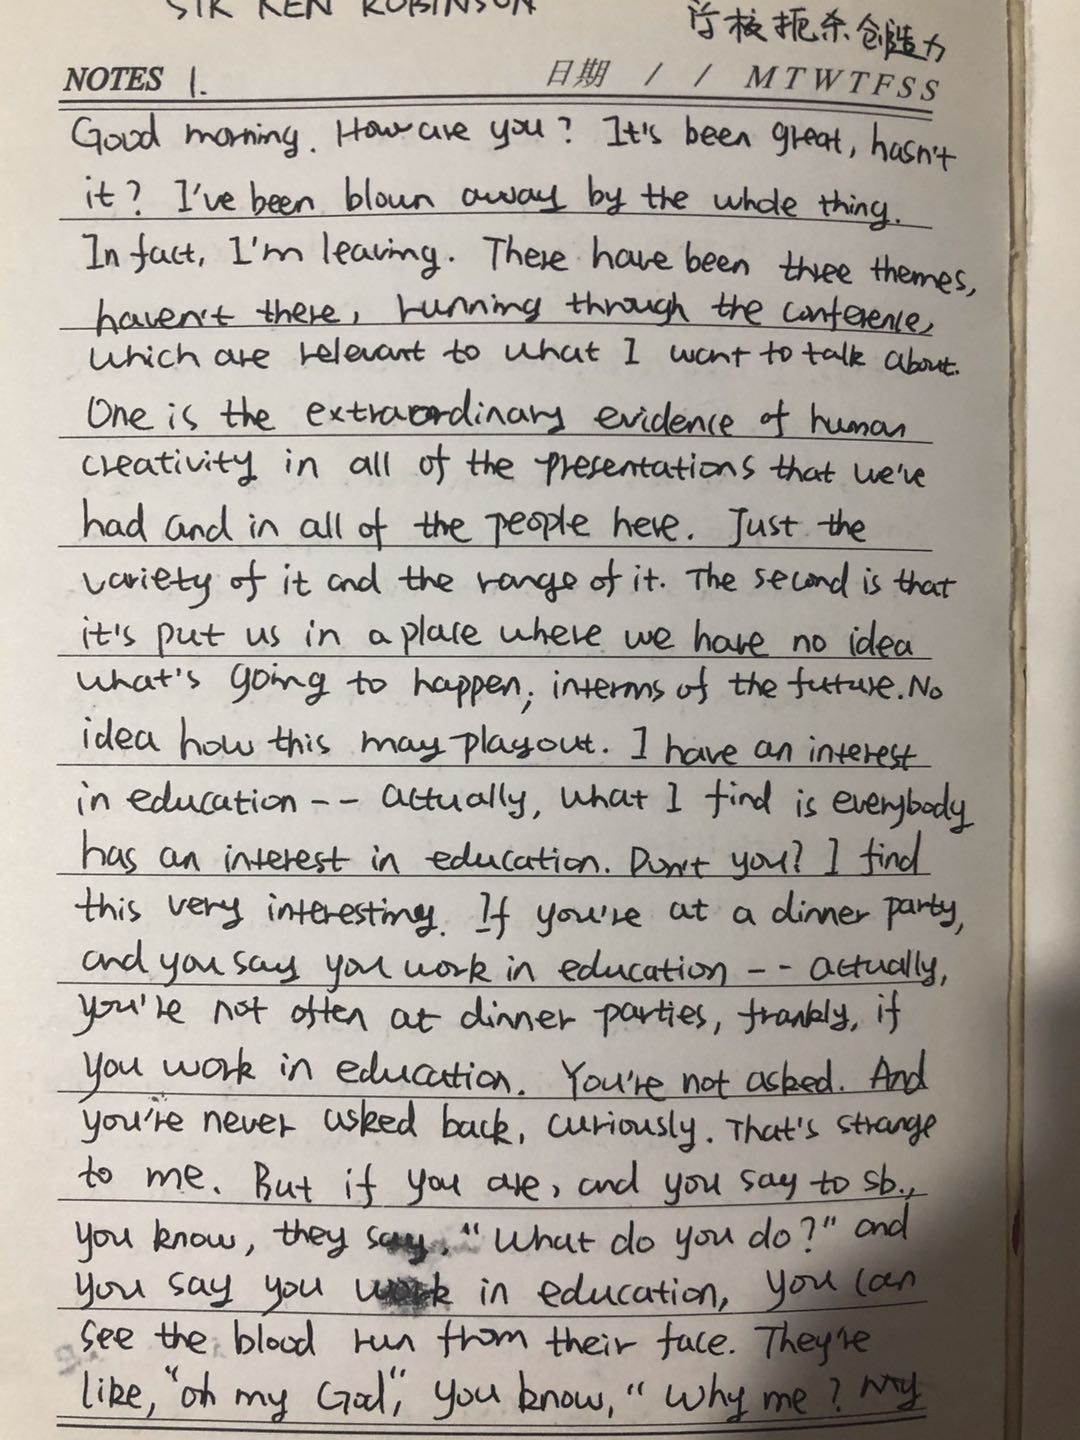 SIR KEN ROBINSON
学校扼杀创造力
NOTES 1. 日期 / / M T W T F S S
Good morning. How are you? It's been great, hasn't
it? I've been blown away by the whole thing.
In fact, I'm leaving. There have been three themes,
haven't there, running through the conference,
which are relevant to what I want to talk about.
One is the extraordinary evidence of human
creativity in all of the presentations that we've
had and in all of the people here. Just the
variety of it and the range of it. The second is that
it's put us in a place where we have no idea
what's going to happen, interms of the future. No
idea how this may playout. I have an interest
in education -- actually, what I find is everybody
has an interest in education. Don't you? I find
this very interesting. If you're at a dinner party,
and you say you work in education -- actually,
you're not often at dinner parties, frankly, if
you work in education. You're not asked. And
you're never asked back, curiously. That's strange
to me. But if you are, and you say to sb.,
you know, they say, "What do you do?" and
you say you work in education, you can
see the blood run from their face. They're
like, "oh my God", you know, "Why me? My